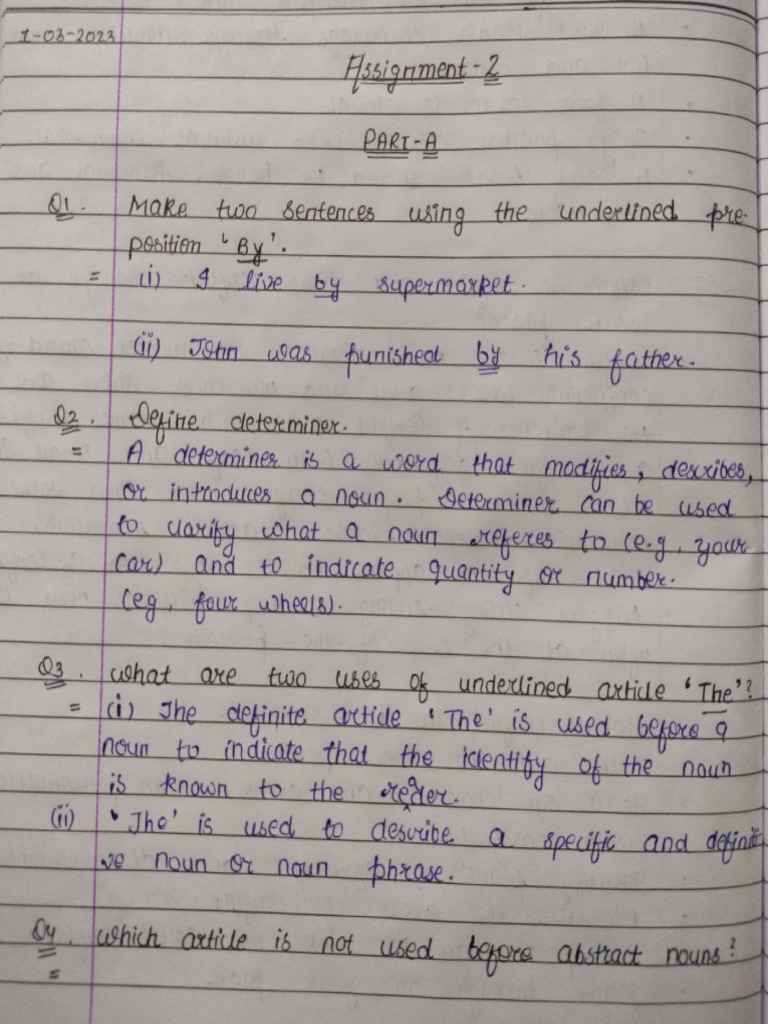 1-03-2023
Assignment-2
PART-A
Q1. Make two sentences using the underlined pre-
position 'By'.
= (i) I live by supermarket.
(ii) John was punished by his father.
Q2. Define determiner.
= A determiner is a word that modifies, describes,
or introduces a noun. Determiner can be used
to clarify what a noun referes to (e.g. your
car) and to indicate quantity or number.
(eg, four wheels).
Q3. what are two uses of underlined article 'The'?
= (i) The definite article 'The' is used before a
noun to indicate that the identity of the noun
is known to the reader.
(ii) 'The' is used to describe a specific and definiti
ve noun or noun phrase.
Q4. which article is not used before abstract nouns?
=